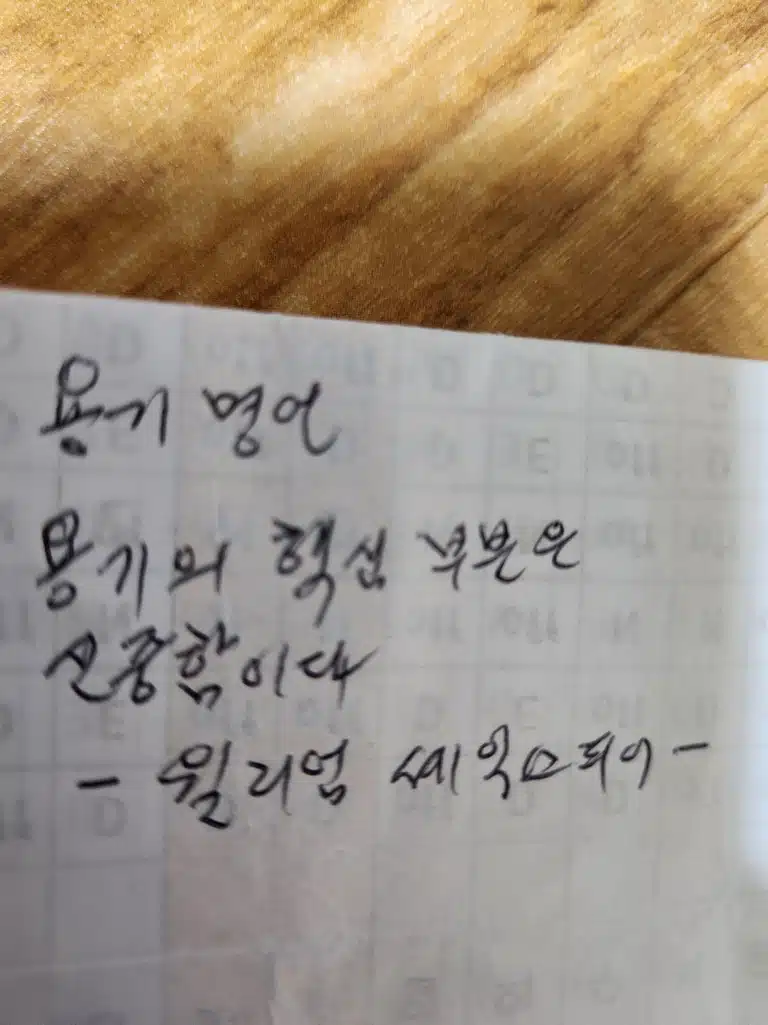 용기 명언
용기의 핵심 부분은
신중함이다
- 윌리엄 세익스피어 -